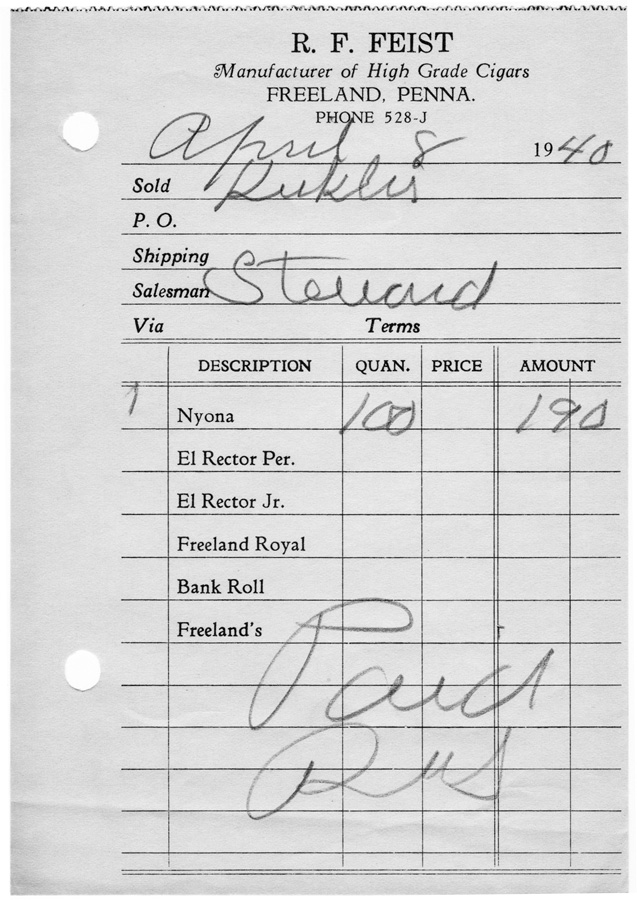 R. F. FEIST
Manufacturer of High Grade Cigars
FREELAND, PENNA.
PHONE 528-J
April 8 1940
Sold Kuklis
P. O.
Shipping
Salesman Steward
Via Terms
DESCRIPTION QUAN. PRICE AMOUNT
1 Nyona 100 190
El Rector Per.
El Rector Jr.
Freeland Royal
Bank Roll
Freeland's
Paid